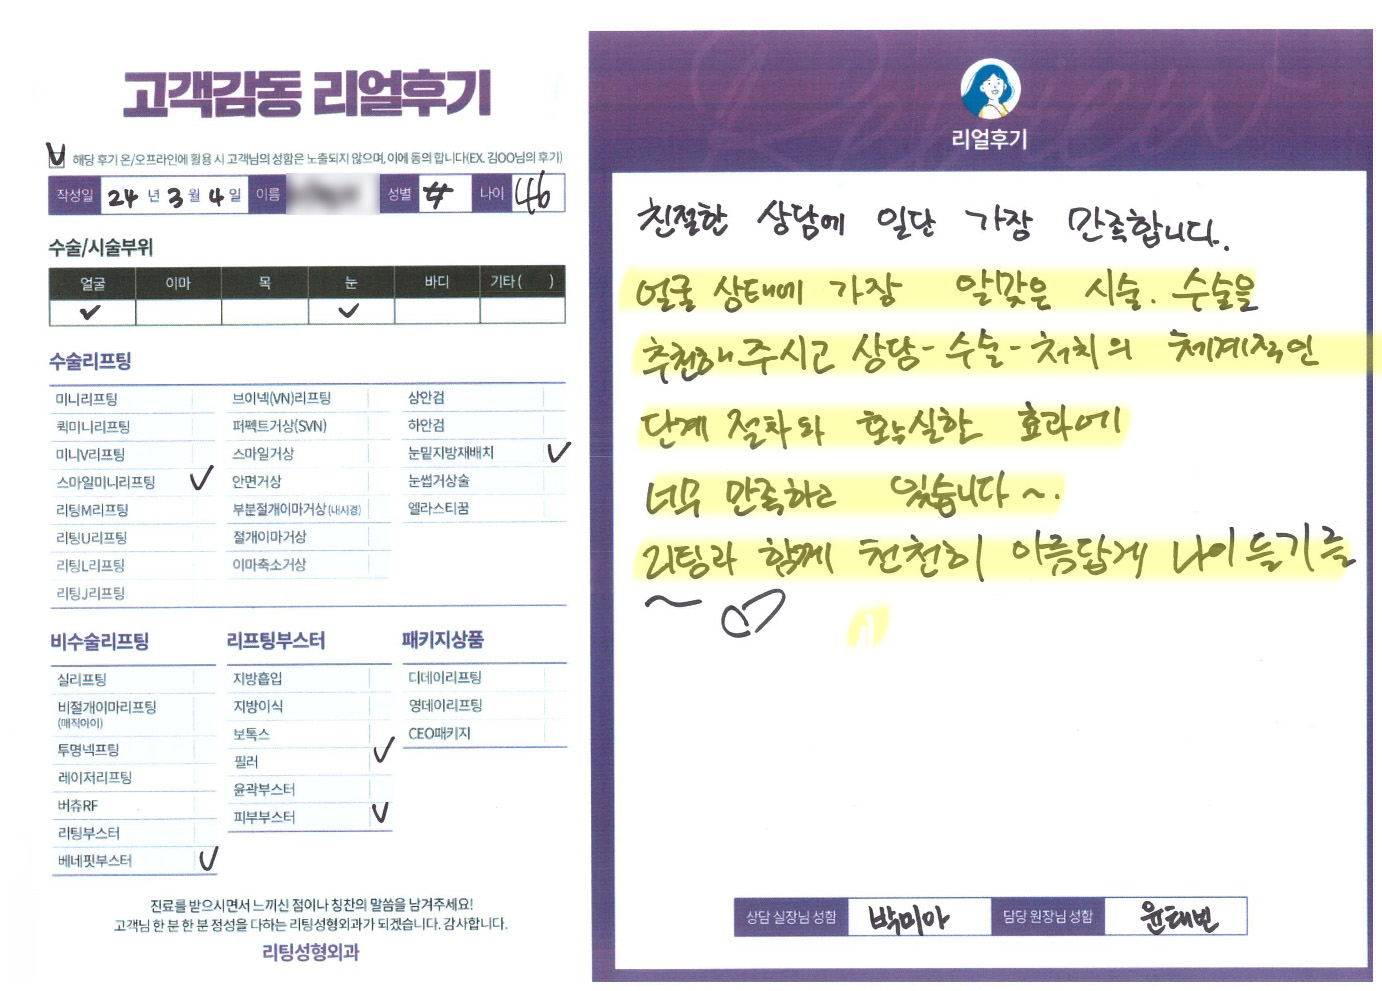 고객감동 리얼후기
해당 후기 온/오프라인에 활용 시 고객님의 성함은 노출되지 않으며, 이에 동의 합니다(EX. 김OO님의 후기)
작성일 24 년 3 월 4 일 이름 성별 나이 46
수술/시술부위
얼굴 이마 목 눈 바디 기타( )
수술리프팅
미니리프팅
퀵미니리프팅
미니V리프팅
스마일미니리프팅
리팅M리프팅
리팅U리프팅
리팅L리프팅
리팅J리프팅
브이넥(VN)리프팅
퍼펙트거상(SVN)
스마일거상
안면거상
부분절개이마거상(내시경)
절개이마거상
이마축소거상
상안검
하안검
눈밑지방재배치
눈썹거상술
엘라스티꿈
비수술리프팅
실리프팅
비절개이마리프팅
(매직아이)
투명넥프팅
레이저리프팅
버츄RF
리팅부스터
베네핏부스터
리프팅부스터
지방흡입
지방이식
보톡스
필러
윤곽부스터
피부부스터
패키지상품
디데이리프팅
영데이리프팅
CEO패키지
진료를 받으시면서 느끼신 점이나 칭찬의 말씀을 남겨주세요!
고객님 한 분 한 분 정성을 다하는 리팅성형외과가 되겠습니다. 감사합니다.
리팅성형외과
Review
리얼후기
친절한 상담에 일단 가장 만족합니다.
얼굴 상태에 가장 알맞은 시술. 수술을
추천해 주시고 상담-수술-처치의 체계적인
단계 절차와 확실한 효과에
너무 만족하고 있습니다~.
리팅과 함께 천천히 아름답게 나이들기를
~
상담 실장님 성함 박미아 담당 원장님 성함 윤태번